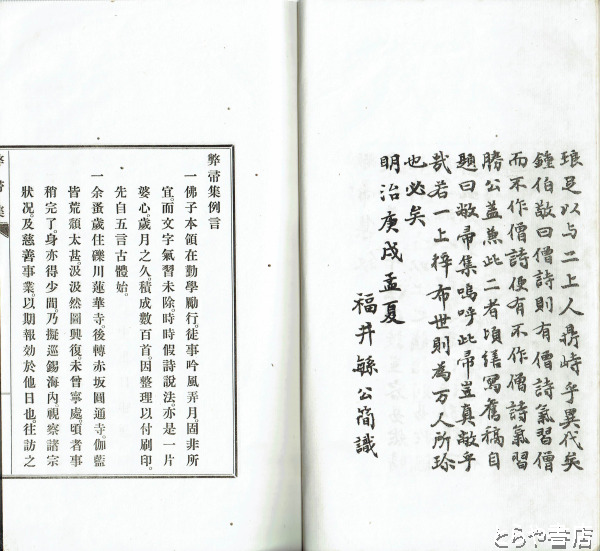 琅足以与二上人鼎峙乎異代矣
鍾伯敬曰僧詩則有僧詩氣習僧
而不作僧詩便有不作僧詩氣習
勝公蓋兼此二者頃繕寫舊稿自
題曰敝帚集嗚呼此帚豈真敝乎
哉若一上梓布世則為万人所珍
也必矣
明治庚戌孟夏
福井繇公簡識
弊帚集例言
一佛子本領在勤學勵行。徒事吟風弄月。固非所
宜。而文字氣習未除。時時假詩說法。亦是一片
婆心。歲月之久。積成數百首。因整理以付刷印。
先自五言古體始。
一余蚤歲住礫川蓮華寺。後轉赤坂圓通寺。伽藍
皆荒頽太甚。汲汲然圖興復。未曾寧處。頃者事
稍完了。身亦得少間。乃擬巡錫海內。視察諸宗
狀況。及慈善事業。以期報効於他日也。往訪之
弊帚集
とらや書店